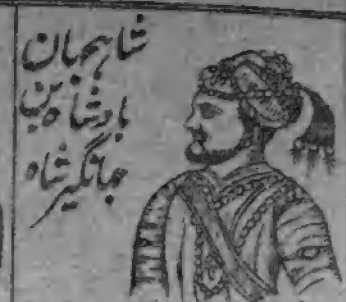 شاہجہان
بادشاہ بن
جہانگیر شاہ